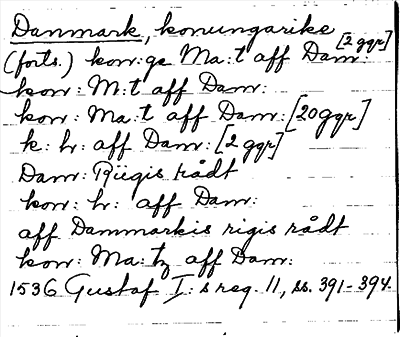 Danmark, konungarike
(forts.) kon:ge Ma:t aff Dam: [2 ggr]
kon: M:t aff Dam:
kon: Ma:t aff Dam: [20 ggr]
k: h: aff Dam: [2 ggr]
Dam: Riigis rådt
kon: h: aff Dam:
aff Dammarkis rigis rådt
kon: Ma:tz aff Dam:
1536 Gustaf I:s reg. 11, ss. 391-394.